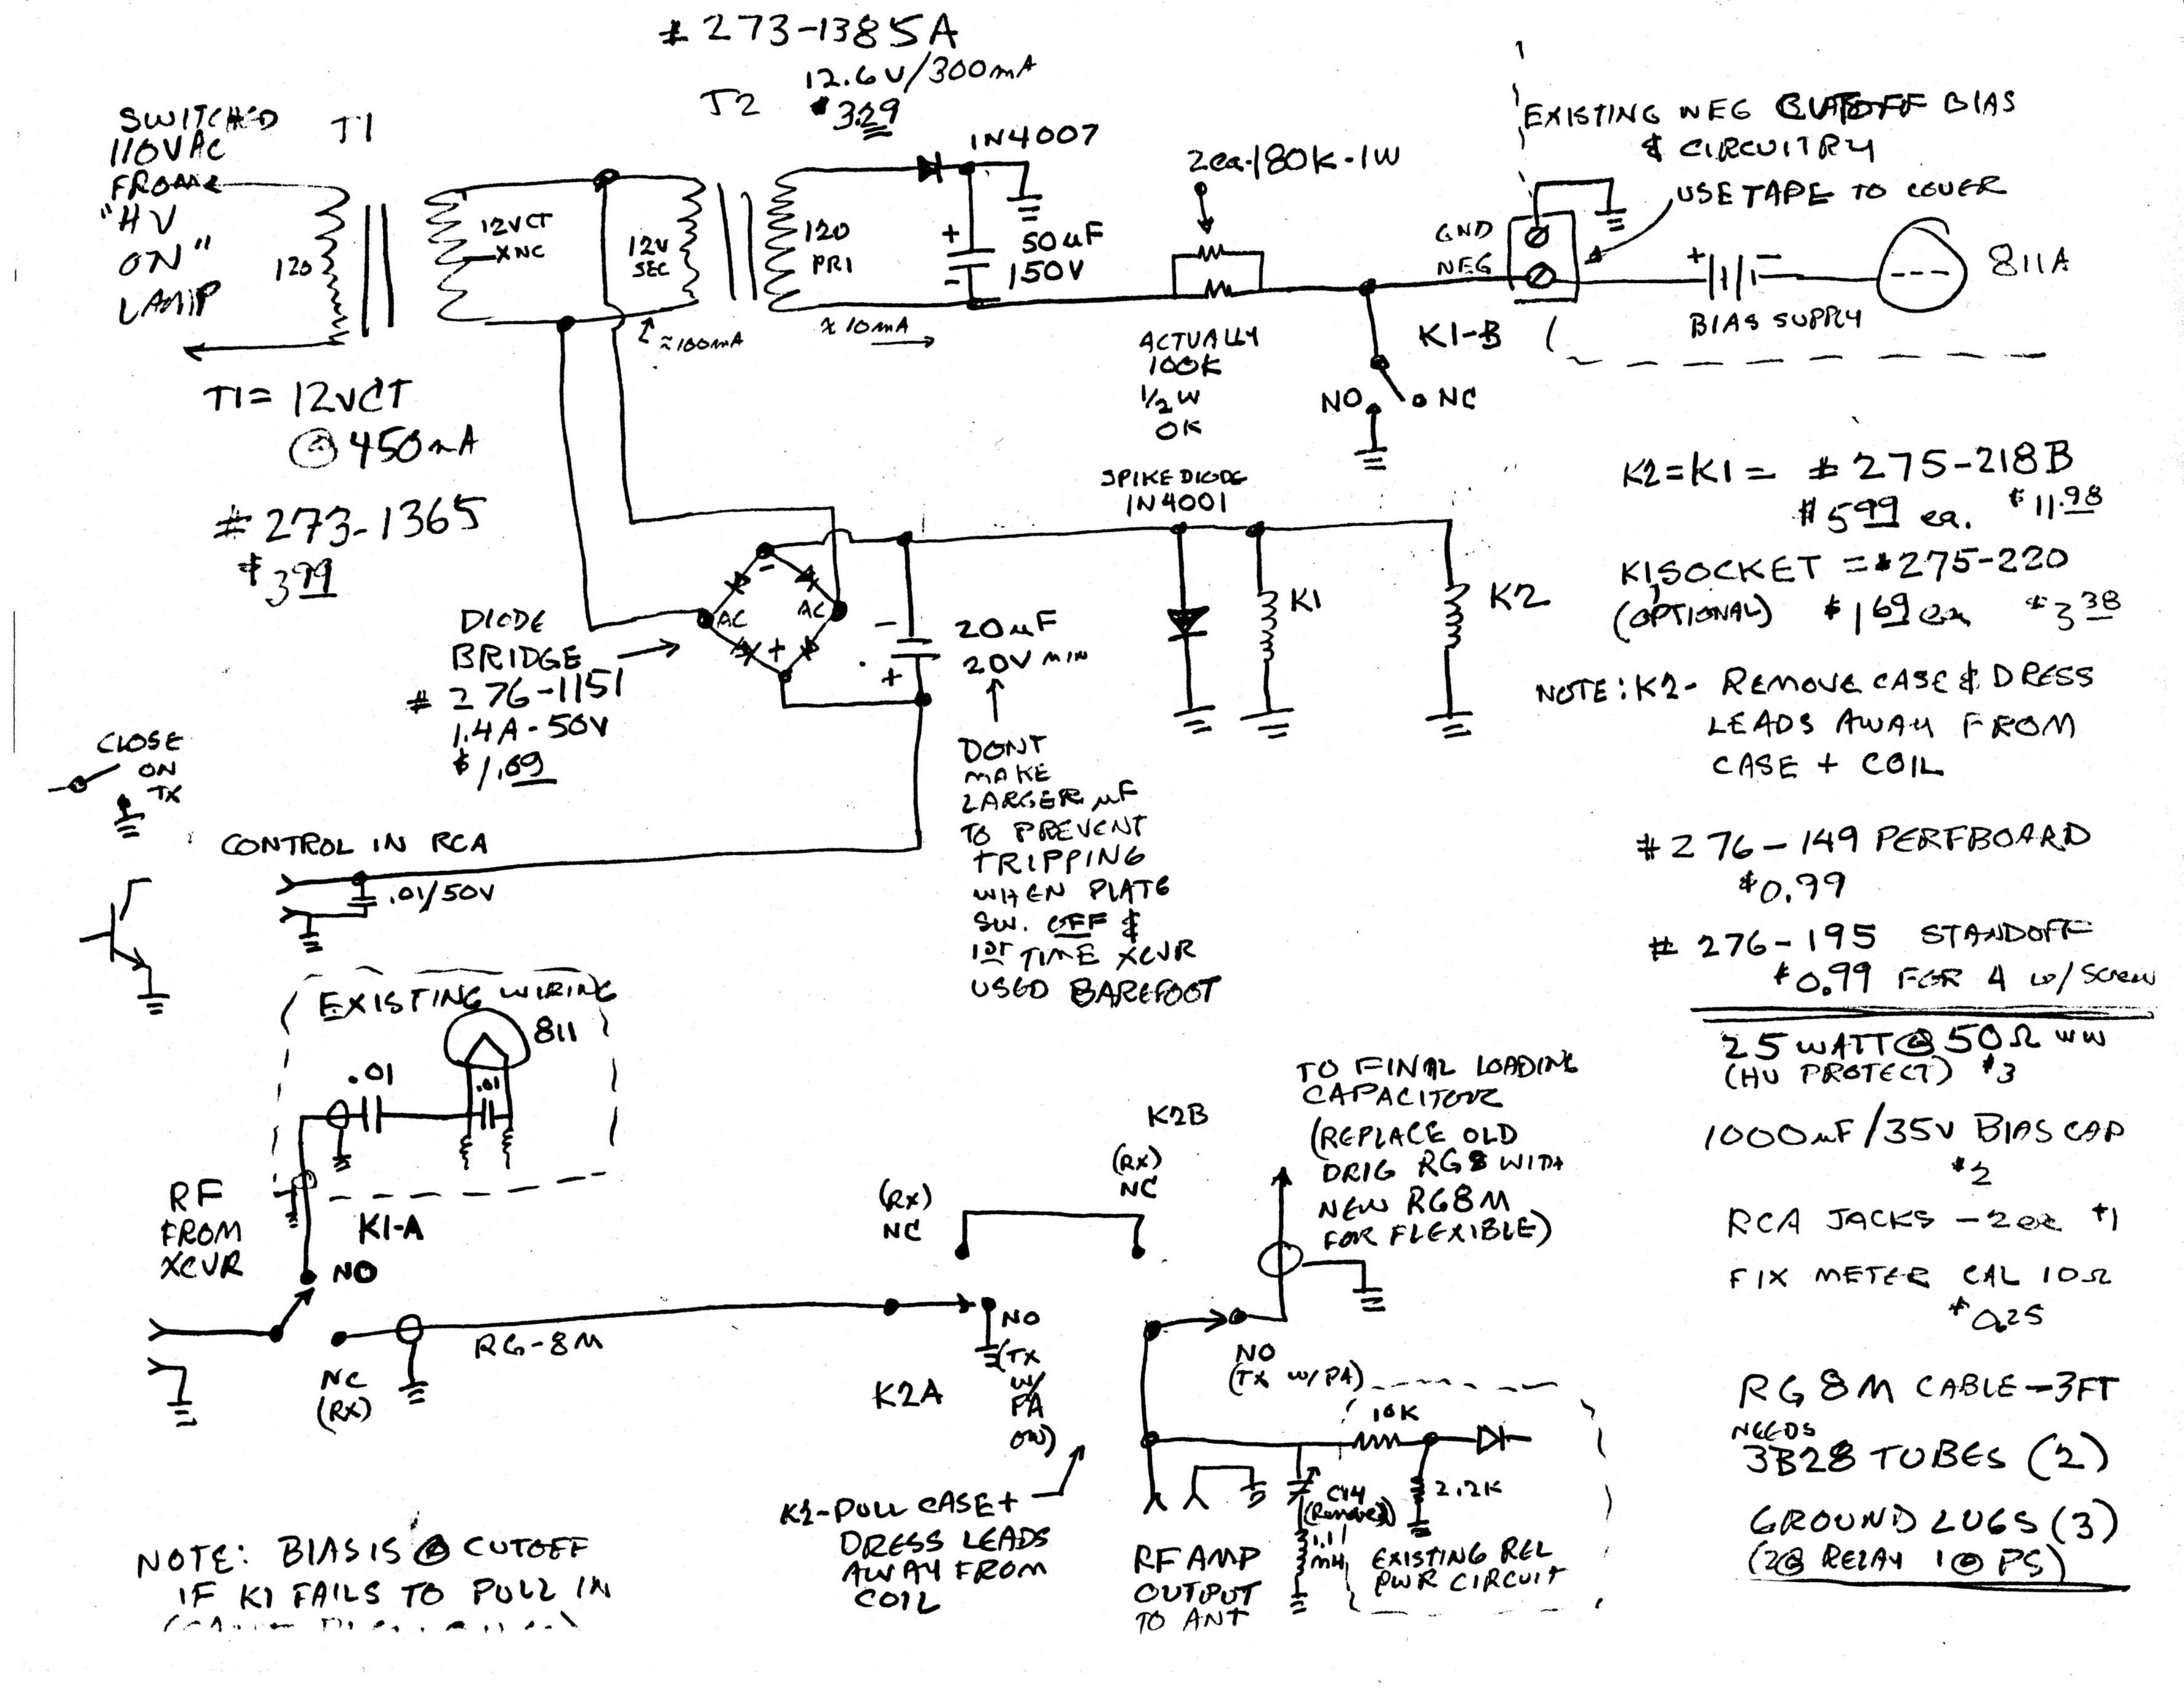 # 273-1385A
12.6V/300mA
$3.29
SWITCHED
110VAC
FROM
"HV
ON"
LAMP
T1
120
12VCT
XNC
T2
12V
SEC
≈100mA
120
PRI
≈10mA
1N4007
+
50µF
150V
-
2ea-180K-1W
ACTUALLY
100K
1/2W
OK
EXISTING NEG CUTOFF BIAS
& CIRCUITRY
USE TAPE TO COVER
GND
NEG
+
-
BIAS SUPPLY
811A
K1-B
NO
NC
T1= 12VCT
@450mA
#273-1365
$3.99
DIODE
BRIDGE
# 276-1151
1.4A-50V
$1.69
-
AC
AC
+
-
20µF
20V MIN
+
DONT
MAKE
LARGER µF
TO PREVENT
TRIPPING
WHEN PLATE
SW. OFF &
1ST TIME XCVR
USED BAREFOOT
SPIKE DIODE
1N4001
K1
K2
K2=K1= # 275-218B
$5.99 ea. $11.98
K1,SOCKET = #275-220
(OPTIONAL) $1.69 ea $3.38
NOTE: K2- REMOVE CASE & DRESS
LEADS AWAY FROM
CASE + COIL
#276-149 PERFBOARD
$0.99
# 276-195 STANDOFF
$0.99 FOR 4 w/SCREW
25 WATT@50Ω WW
(HV PROTECT) $3
1000µF/35V BIAS CAP
$2
RCA JACKS -2ea $1
FIX METER CAL 10Ω
$0.25
RG 8M CABLE-3FT
NEEDS
3B28 TUBES (2)
GROUND LUGS (3)
(2@ RELAY 1@ PS)
CLOSE
ON
TX
CONTROL IN RCA
.01/50V
EXISTING WIRING
811
.01
.01
RF
FROM
XCVR
K1-A
NO
NC
(RX)
RG-8M
(RX)
NC
K2A
NO
(TX
W/
PA
ON)
K2B
(RX)
NC
TO FINAL LOADING
CAPACITOR
(REPLACE OLD
ORIG RG8 WITH
NEW RG8M
FOR FLEXIBLE)
NO
(TX W/PA)
10K
2.2K
C14
(Removed)
1.1
mH
EXISTING REL
PWR CIRCUIT
RF AMP
OUTPUT
TO ANT
K2-PULL CASE+
DRESS LEADS
AWAY FROM
COIL
NOTE: BIAS IS @ CUTOFF
IF K1 FAILS TO PULL IN